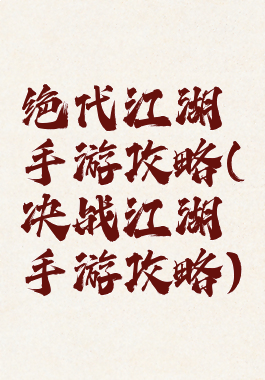 绝代江湖
手游攻略(
决战江湖
手游攻略)